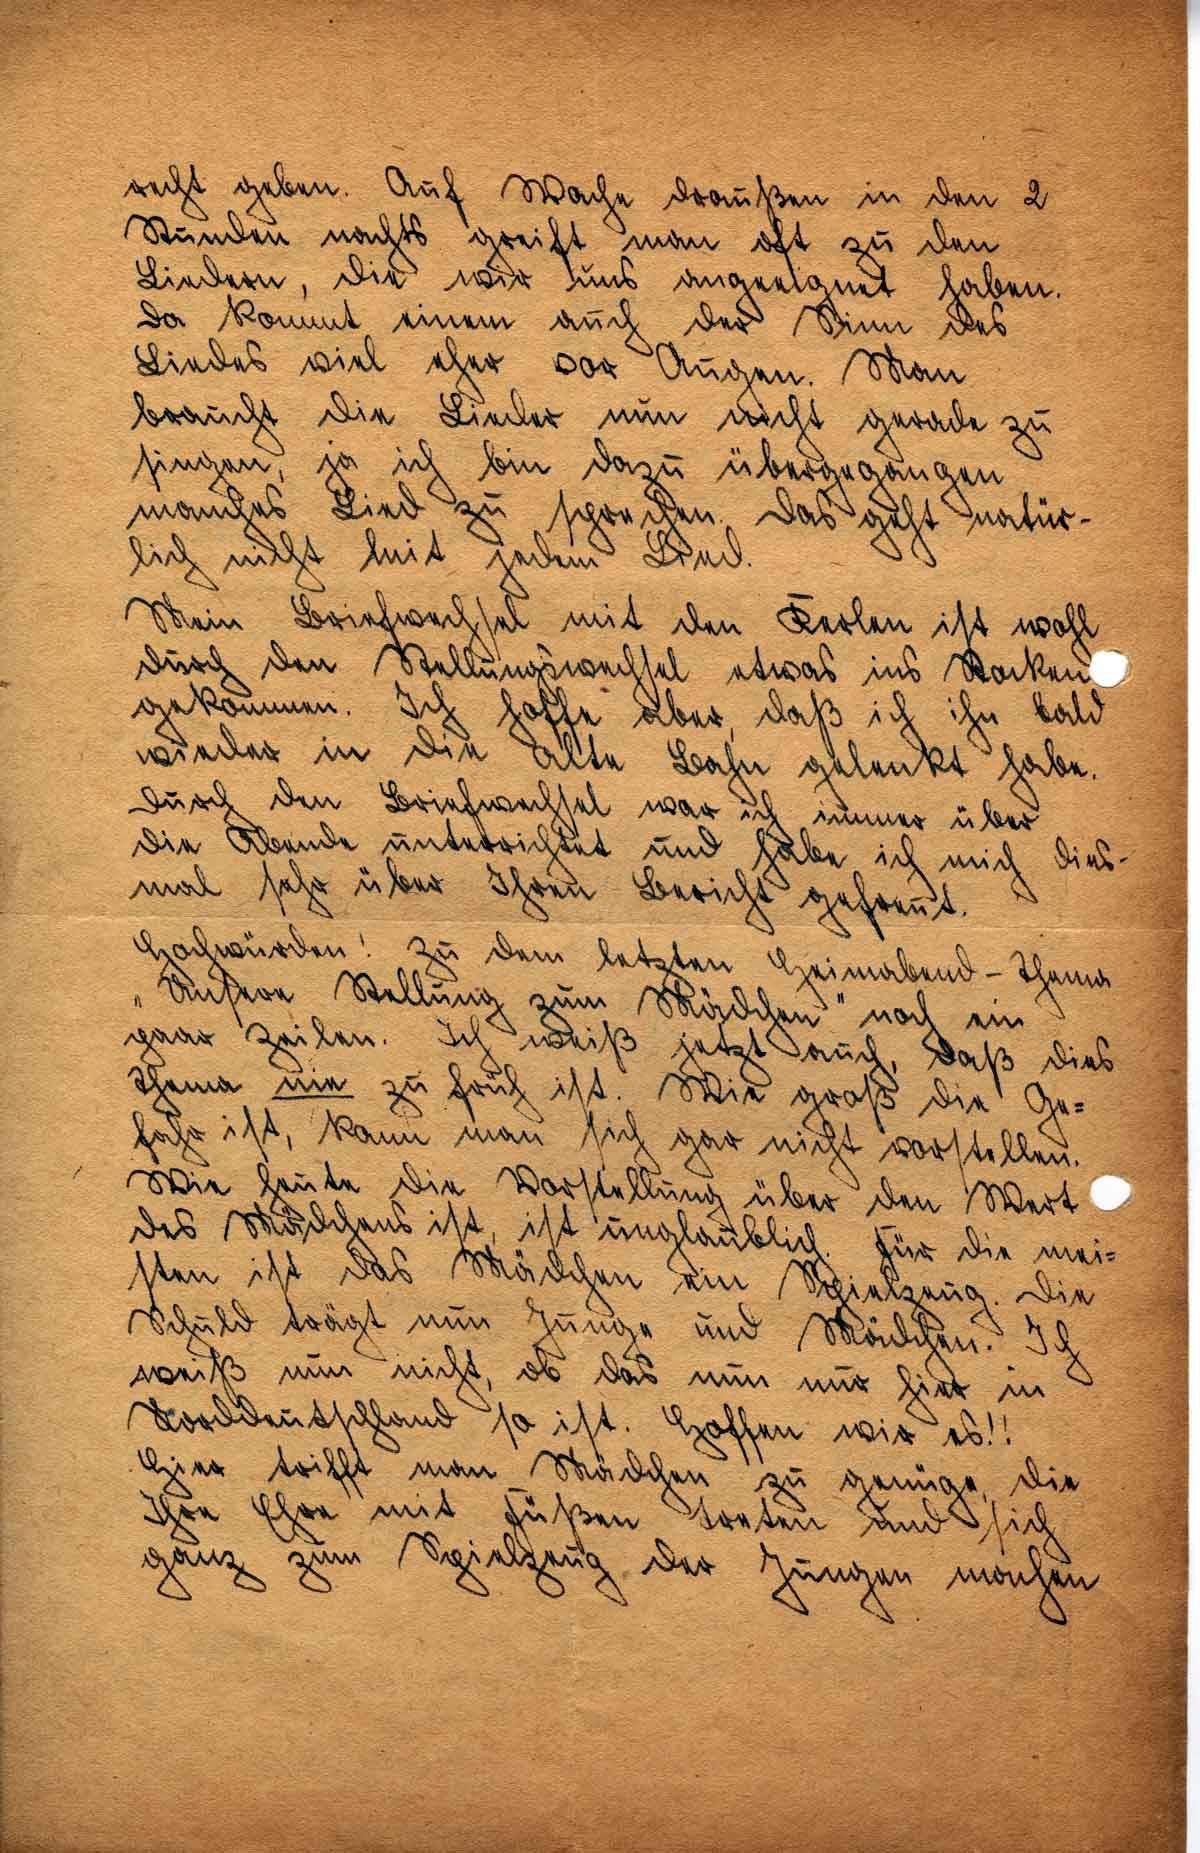 recht geben. Auf Wache draußen in den 2
Stunden nachts greift man oft zu den
Liedern, die wir uns angeeignet haben.
Da kommt einem auch der Sinn des
Liedes viel eher vor Augen. Man
braucht die Lieder nun nicht gerade zu
singen, ja ich bin dazu übergegangen
manches Lied zu sprechen. Das geht natür-
lich nicht mit jedem Lied.
Mein Briefwechsel mit den Kerlen ist wohl
durch den Stellungswechsel etwas ins Stocken
gekommen. Ich hoffe aber, daß ich ihn bald
wieder in die alte Bahn gelenkt habe.
Durch den Briefwechsel war ich immer über
die Abende unterrichtet und habe ich mich dies-
mal sehr über Ihren Bericht gefreut.
Hochwürden! Zu dem letzten Heimabend-Thema
„Unsere Stellung zum Mädchen" noch ein
paar Zeilen. Ich weiß jetzt auch, daß dies
Thema nie zu früh ist. Wie groß die Ge=
fahr ist, kann man sich gar nicht vorstellen.
Wie heute die Vorstellung über den Wert
des Mädchens ist, ist unglaublich. Für die mei=
sten ist das Mädchen ein Spielzeug. Die
Schuld trägt nun Junge und Mädchen. Ich
weiß nun nicht, ob das nun nur hier in
Norddeutschland so ist. Hoffen wir es!!
Hier trifft man Mädchen zu genüge, die
Ihre Ehre mit Füßen treten und sich
ganz zum Spielzeug der Jungen machen